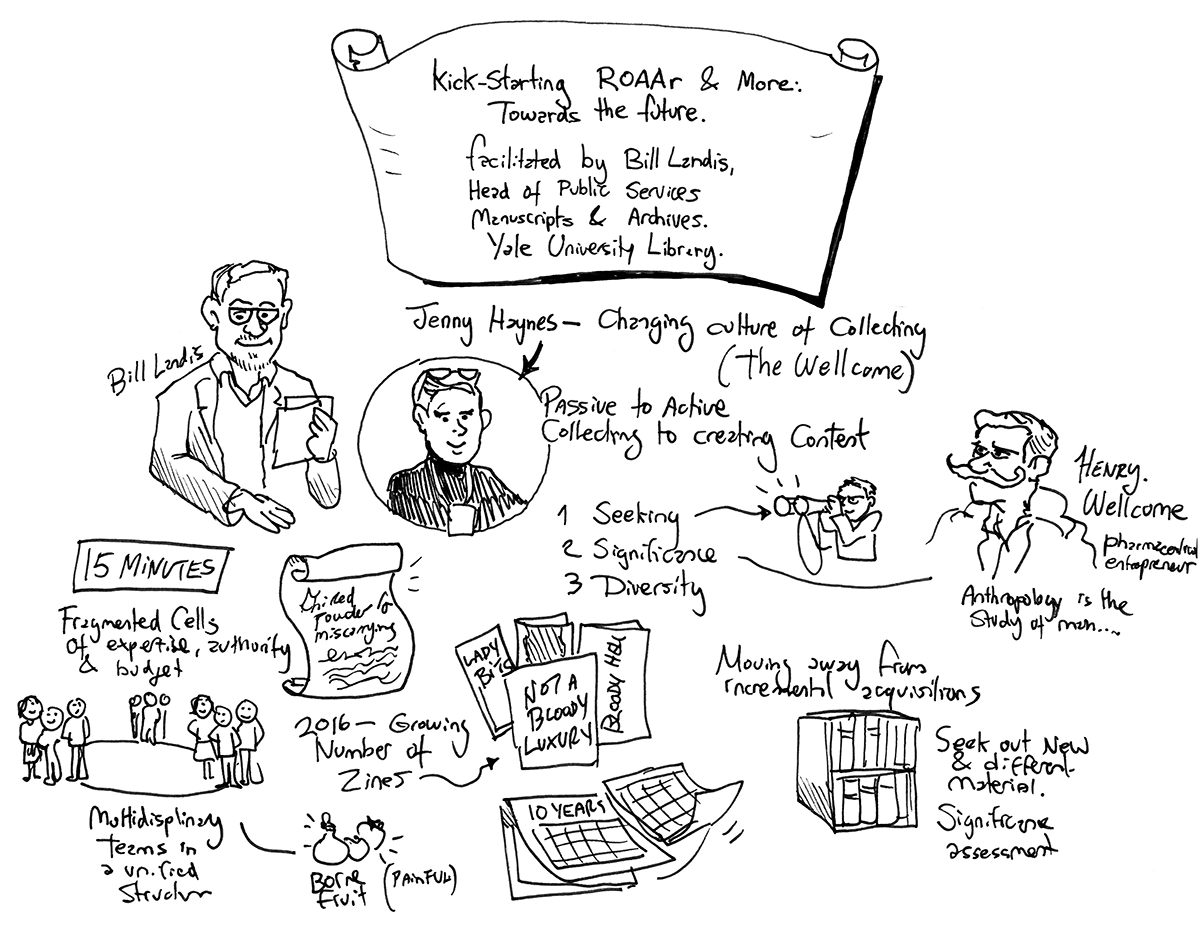 Kick-Starting ROAAr & More:
Towards the future.
facilitated by Bill Landis,
Head of Public Services
Manuscripts & Archives.
Yale University Library.
Bill Landis
Jenny Haynes - Changing culture of Collecting
(The Wellcome)
Passive to Active
Collecting to creating Content
1 Seeking
2 Significance
3 Diversity
HENRY.
Wellcome
pharmaceutical
entrepreneur
Anthropology is the
Study of man....
15 MINUTES
Fragmented Cells
of expertise, authority
& budget
powder for
miscarrying
2016 - Growing
Number of
Zines
LADY
Bits
NOT A
BLOODY
LUXURY
BLOODY Hell
Moving away from
incremental acquisitions
Seek out New
& different
material.
Significance
assessment
10 YEARS
Multidisplinary
teams in
a unified
Structure
Borne
Fruit
(PAINFUL)